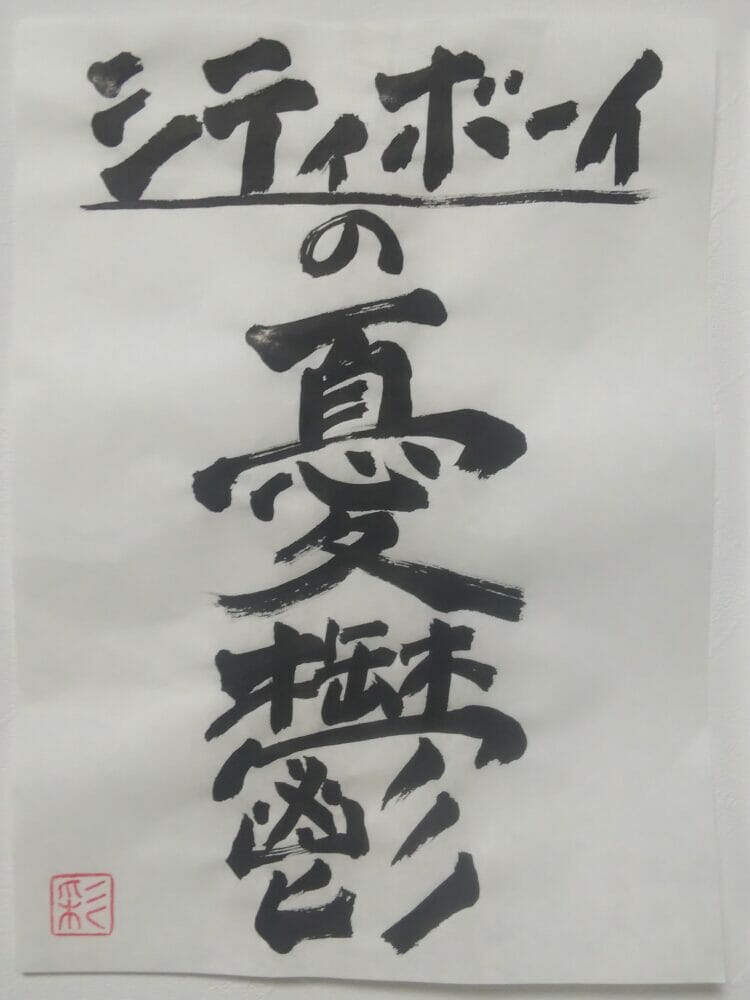 シティボーイ
の
憂
鬱
彩